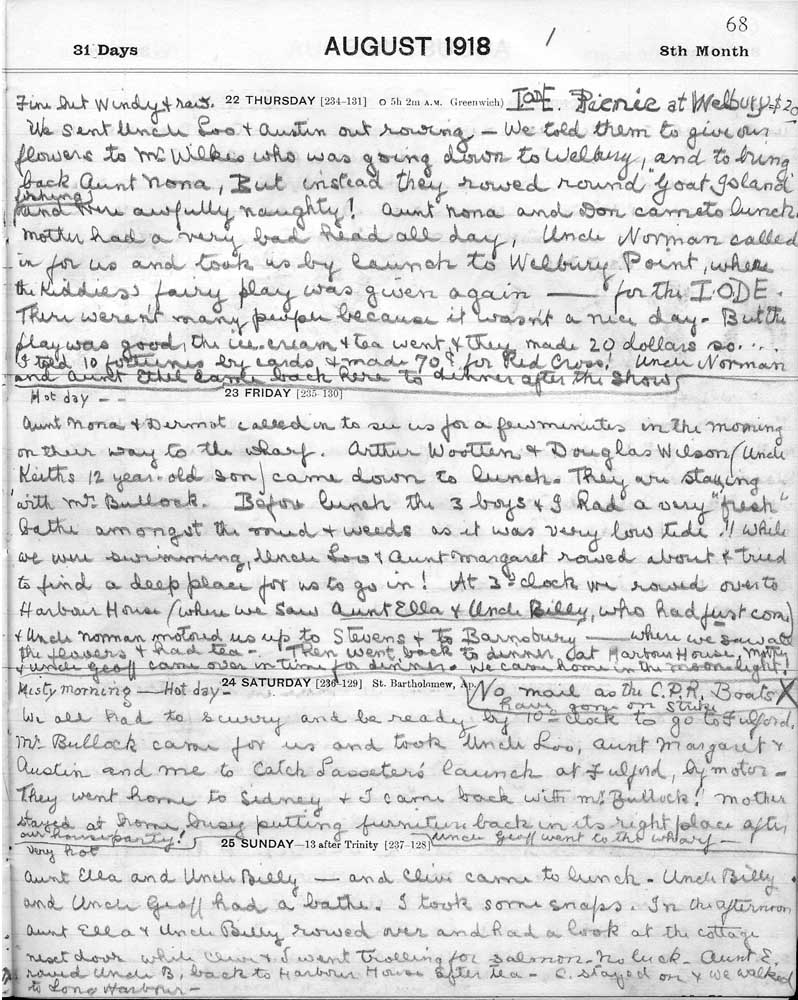 68
31 Days AUGUST 1918 8th Month
Fine but Windy & raw. 22 THURSDAY [234-131] O 5h 2m A.M. Greenwich) IODE. Picnic at Welbury - $20
We sent Uncle Loo & Austin out rowing — We told them to give our
flowers to Mr Wilkes who was going down to Welbury, and to bring
back Aunt Nona, But instead they rowed round "Goat Island
fishing
and were awfully naughty! Aunt Nona and Don came to lunch.
Mother had a very bad head all day, Uncle Norman called
in for us and took us by launch to Welbury Point, where
the Kiddies' fairy play was given again — for the I.O.D.E.
There weren't many people because it wasn't a nice day - But the
play was good, the ice-cream & tea went, & they made 20 dollars so....
I told 10 fortunes by cards & made 70¢ for Red Cross! Uncle Norman
and Aunt Ethel came back here to dinner after the show
Hot day - - 23 FRIDAY [235-130]
Aunt Nona & Dermot called in to see us for a few minutes in the morning
on their way to the wharf. Arthur Wootten & Douglas Wilson (Uncle
Keiths 12 year-old son) came down to lunch. They are staying
with Mr Bullock. Before lunch the 3 boys & I had a very "fresh"
bathe amongst the mud & weeds as it was very low tide!! While
we were swimming, Uncle Loo & Aunt Margaret rowed about & tried
to find a deep place for us to go in! At 3 o'clock we rowed over to
Harbour House (where we saw Aunt Ella & Uncle Billy, who had just come)
& Uncle Norman motored us up to Stevens & to Barnsbury — where we saw all
the flowers & had tea -. Then went back to dinner at Harbour House, Mother
& Uncle Geoff came over in time for dinner. We came home in the moonlight!
Misty morning — Hot day - 24 SATURDAY [236-129] St. Bartholomew, Ap. No mail as the C.P.R. Boats X
have gone on strike
We all had to scurry and be ready by 10 o'clock to go to Fulford.
Mr Bullock came for us and took Uncle Loo, Aunt Margaret &
Austin and me to catch Lasseter's launch at Fulford, by motor -
They went home to Sidney & I came back with Mr Bullock! Mother
stayed at home, busy putting furniture back in its right place after
our house party! Uncle Geoff went to the wharf —
very hot 25 SUNDAY—13 after Trinity [237-128]
Aunt Ella and Uncle Billy — and Clive came to lunch - Uncle Billy
and Uncle Geoff had a bathe. I took some snaps. In the afternoon
Aunt Ella & Uncle Billy rowed over and had a look at the cottage
next door while Clive & I went trolling for salmon - No luck - Aunt E.
rowed Uncle B. back to Harbour House after tea - C. stayed on & we walked
to Long Harbour -